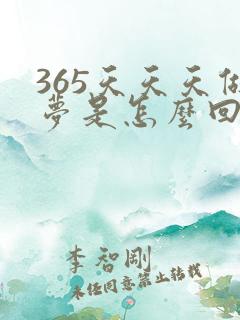 365天天天做
夢是怎麼回
李智剛
未经同意禁止转载